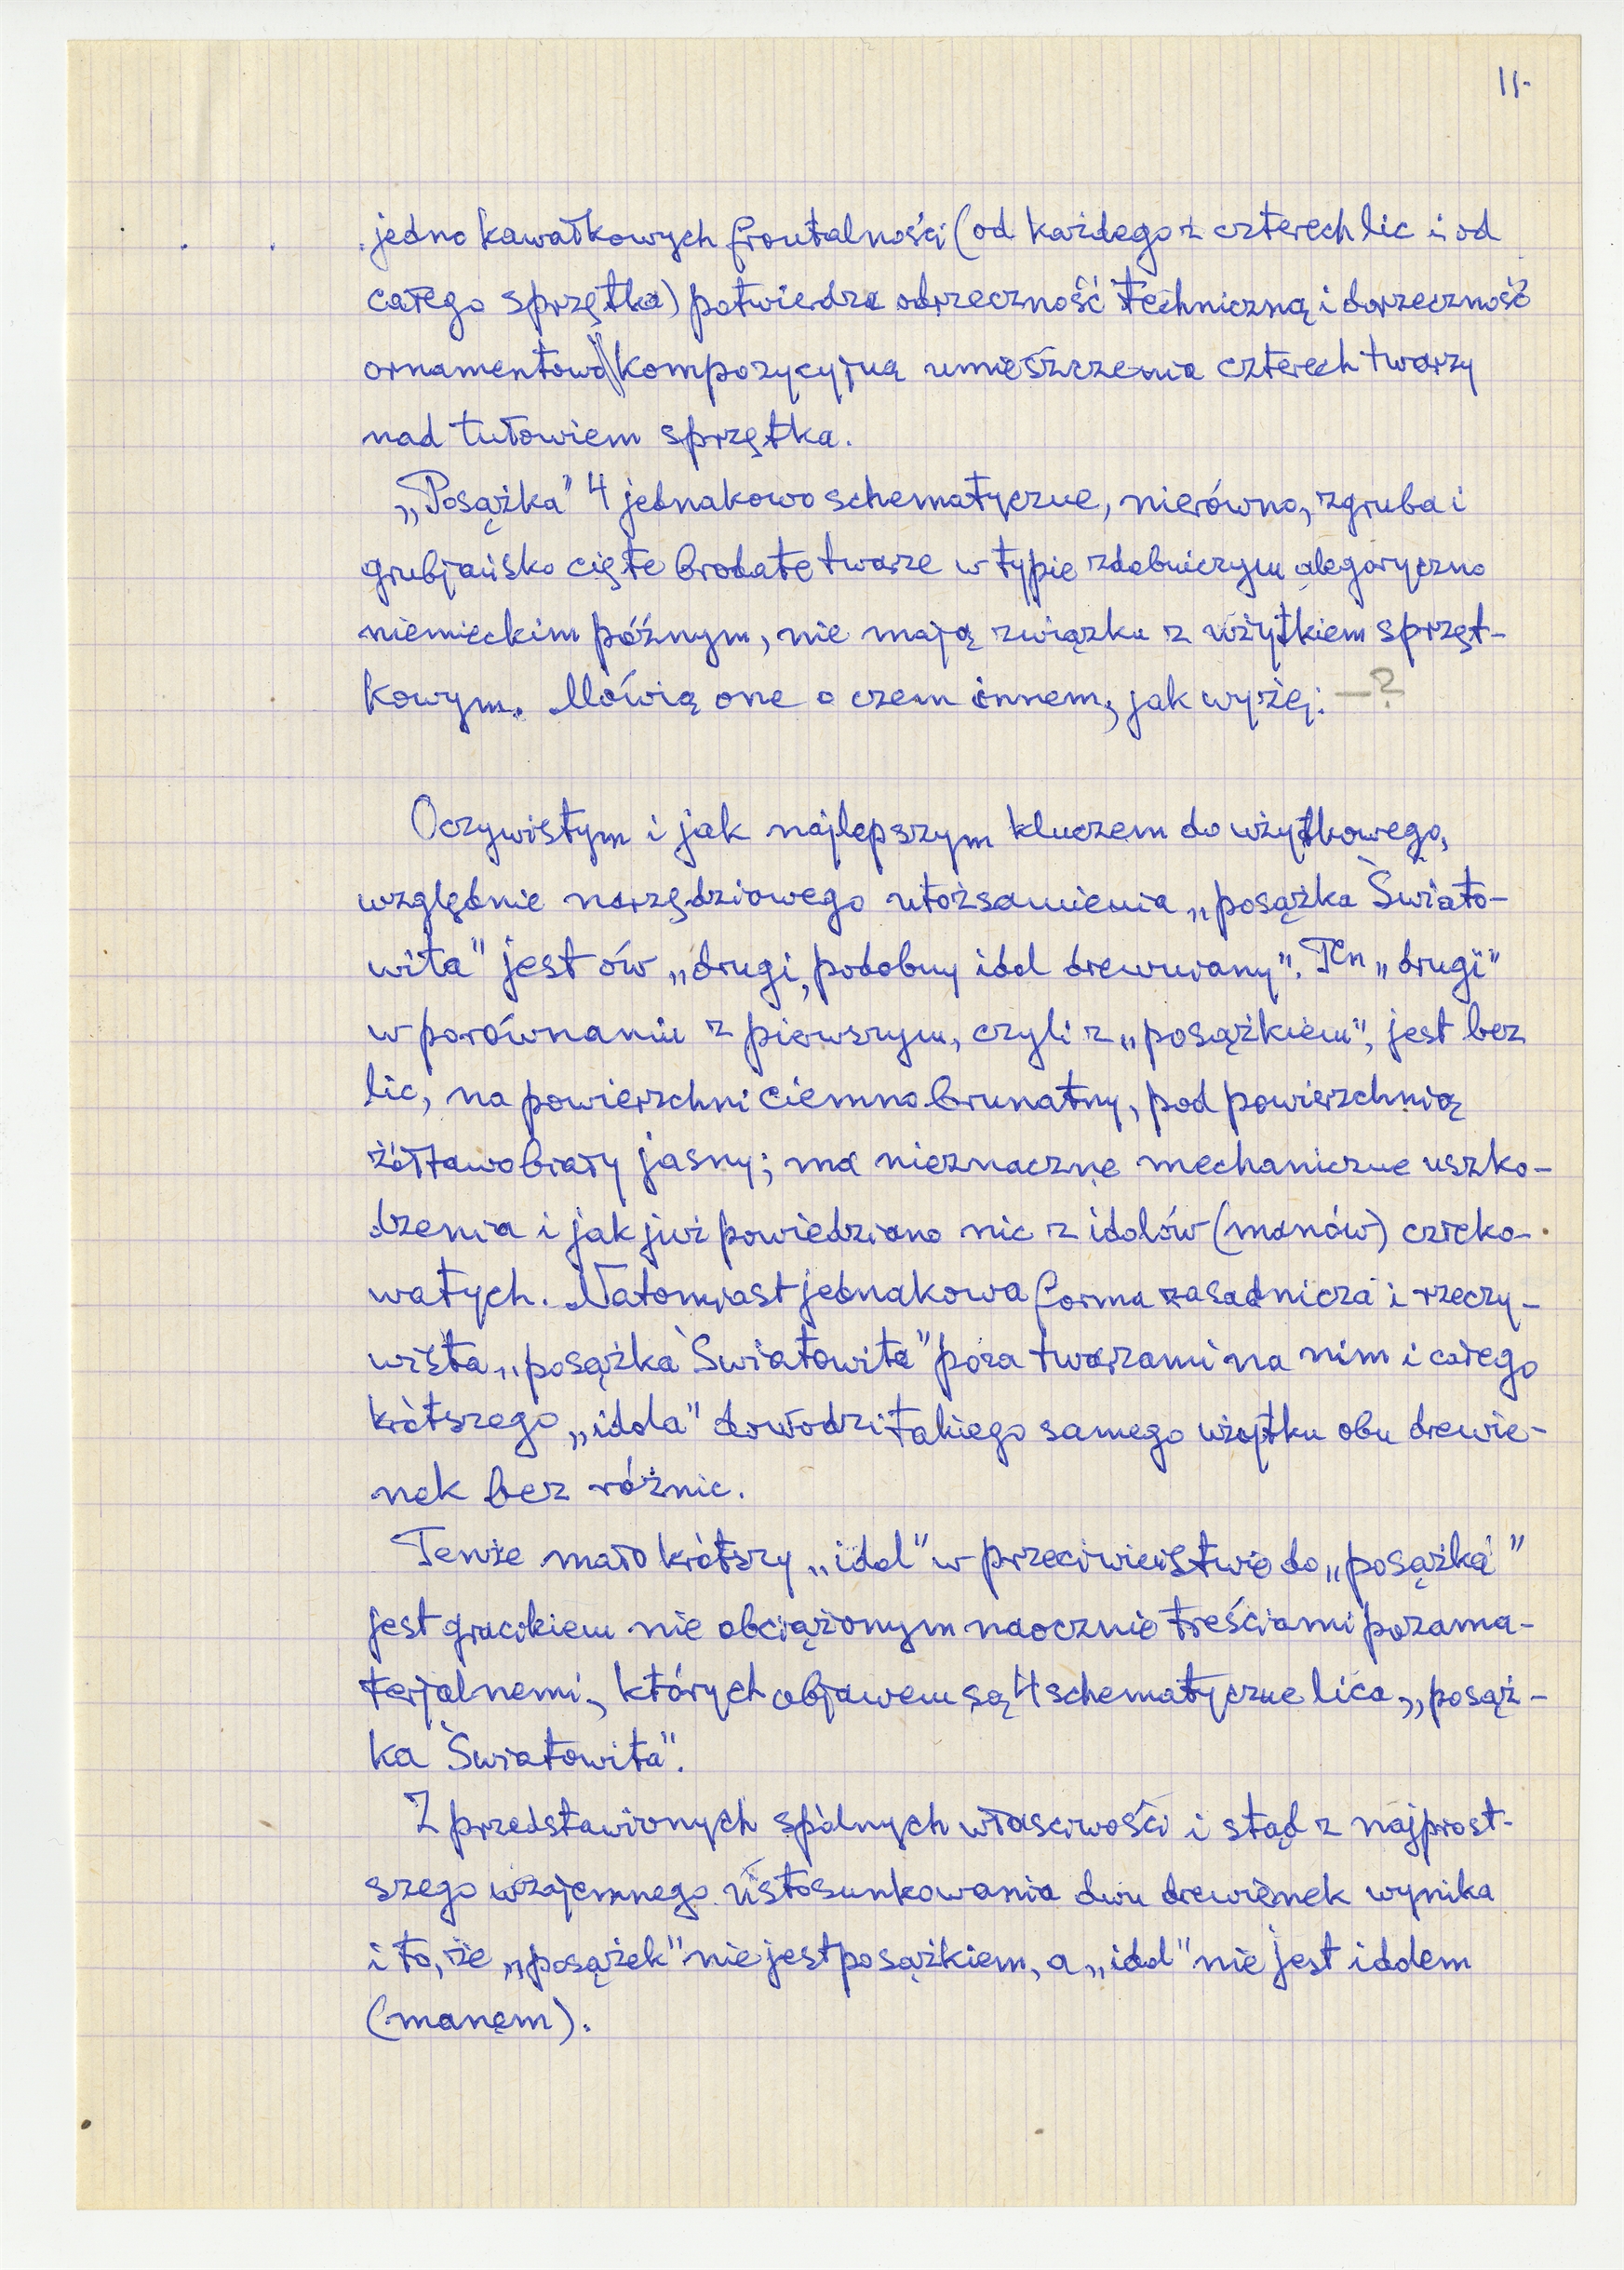 11.
jednokawałkowych frontalności (od każdego z czterech lic i od
całego sprzętka) potwierdza odrzeczność techniczną i dorzeczność
ornamentowo kompozycyjną umieszczenia czterech twarzy
nad tułowiem sprzętka.
„Posążka" 4 jednakowo schematyczne, nierówno, zgruba i
grubjańsko cięte brodate twarze w typie zdobniczym alegoryczno
niemieckim późnym, nie mają związku z użytkiem sprzęt-
kowym. Mówią one o czem innem, jak wyżej: —?
Oczywistym i jak najlepszym kluczem do użytkowego,
względnie narzędziowego utożsamienia „posążka Świato-
wita" jest ów „drugi, podobny idol drewniany". Ten „drugi"
w porównaniu z pierwszym, czyli z „posążkiem", jest bez
lic, na powierzchni ciemno brunatny, pod powierzchnią
żółtawobiały jasny; ma nieznaczne mechaniczne uszko-
dzenia i jak już powiedziano nic z idolów (manów) człeko-
watych. Natomiast jednakowa forma zasadnicza i rzeczy-
wista „posążka Światowita" poza twarzami na nim i całego
krótszego „idola" dowodzi takiego samego użytku obu drewie-
nek bez różnic.
Tenże mało krótszy „idol" w przeciwieństwie do „posążka"
jest gracikiem nie obciążonym naocznie treściami pozama-
terjalnemi, których objawem są 4 schematyczne lica „posąż-
ka Światowita".
Z przedstawionych spólnych właściwości i stąd z najprost-
szego wzajemnego ustosunkowania dwu drewienek wynika
i to, że „posążek" nie jest posążkiem, a „idol" nie jest idolem
(manem).